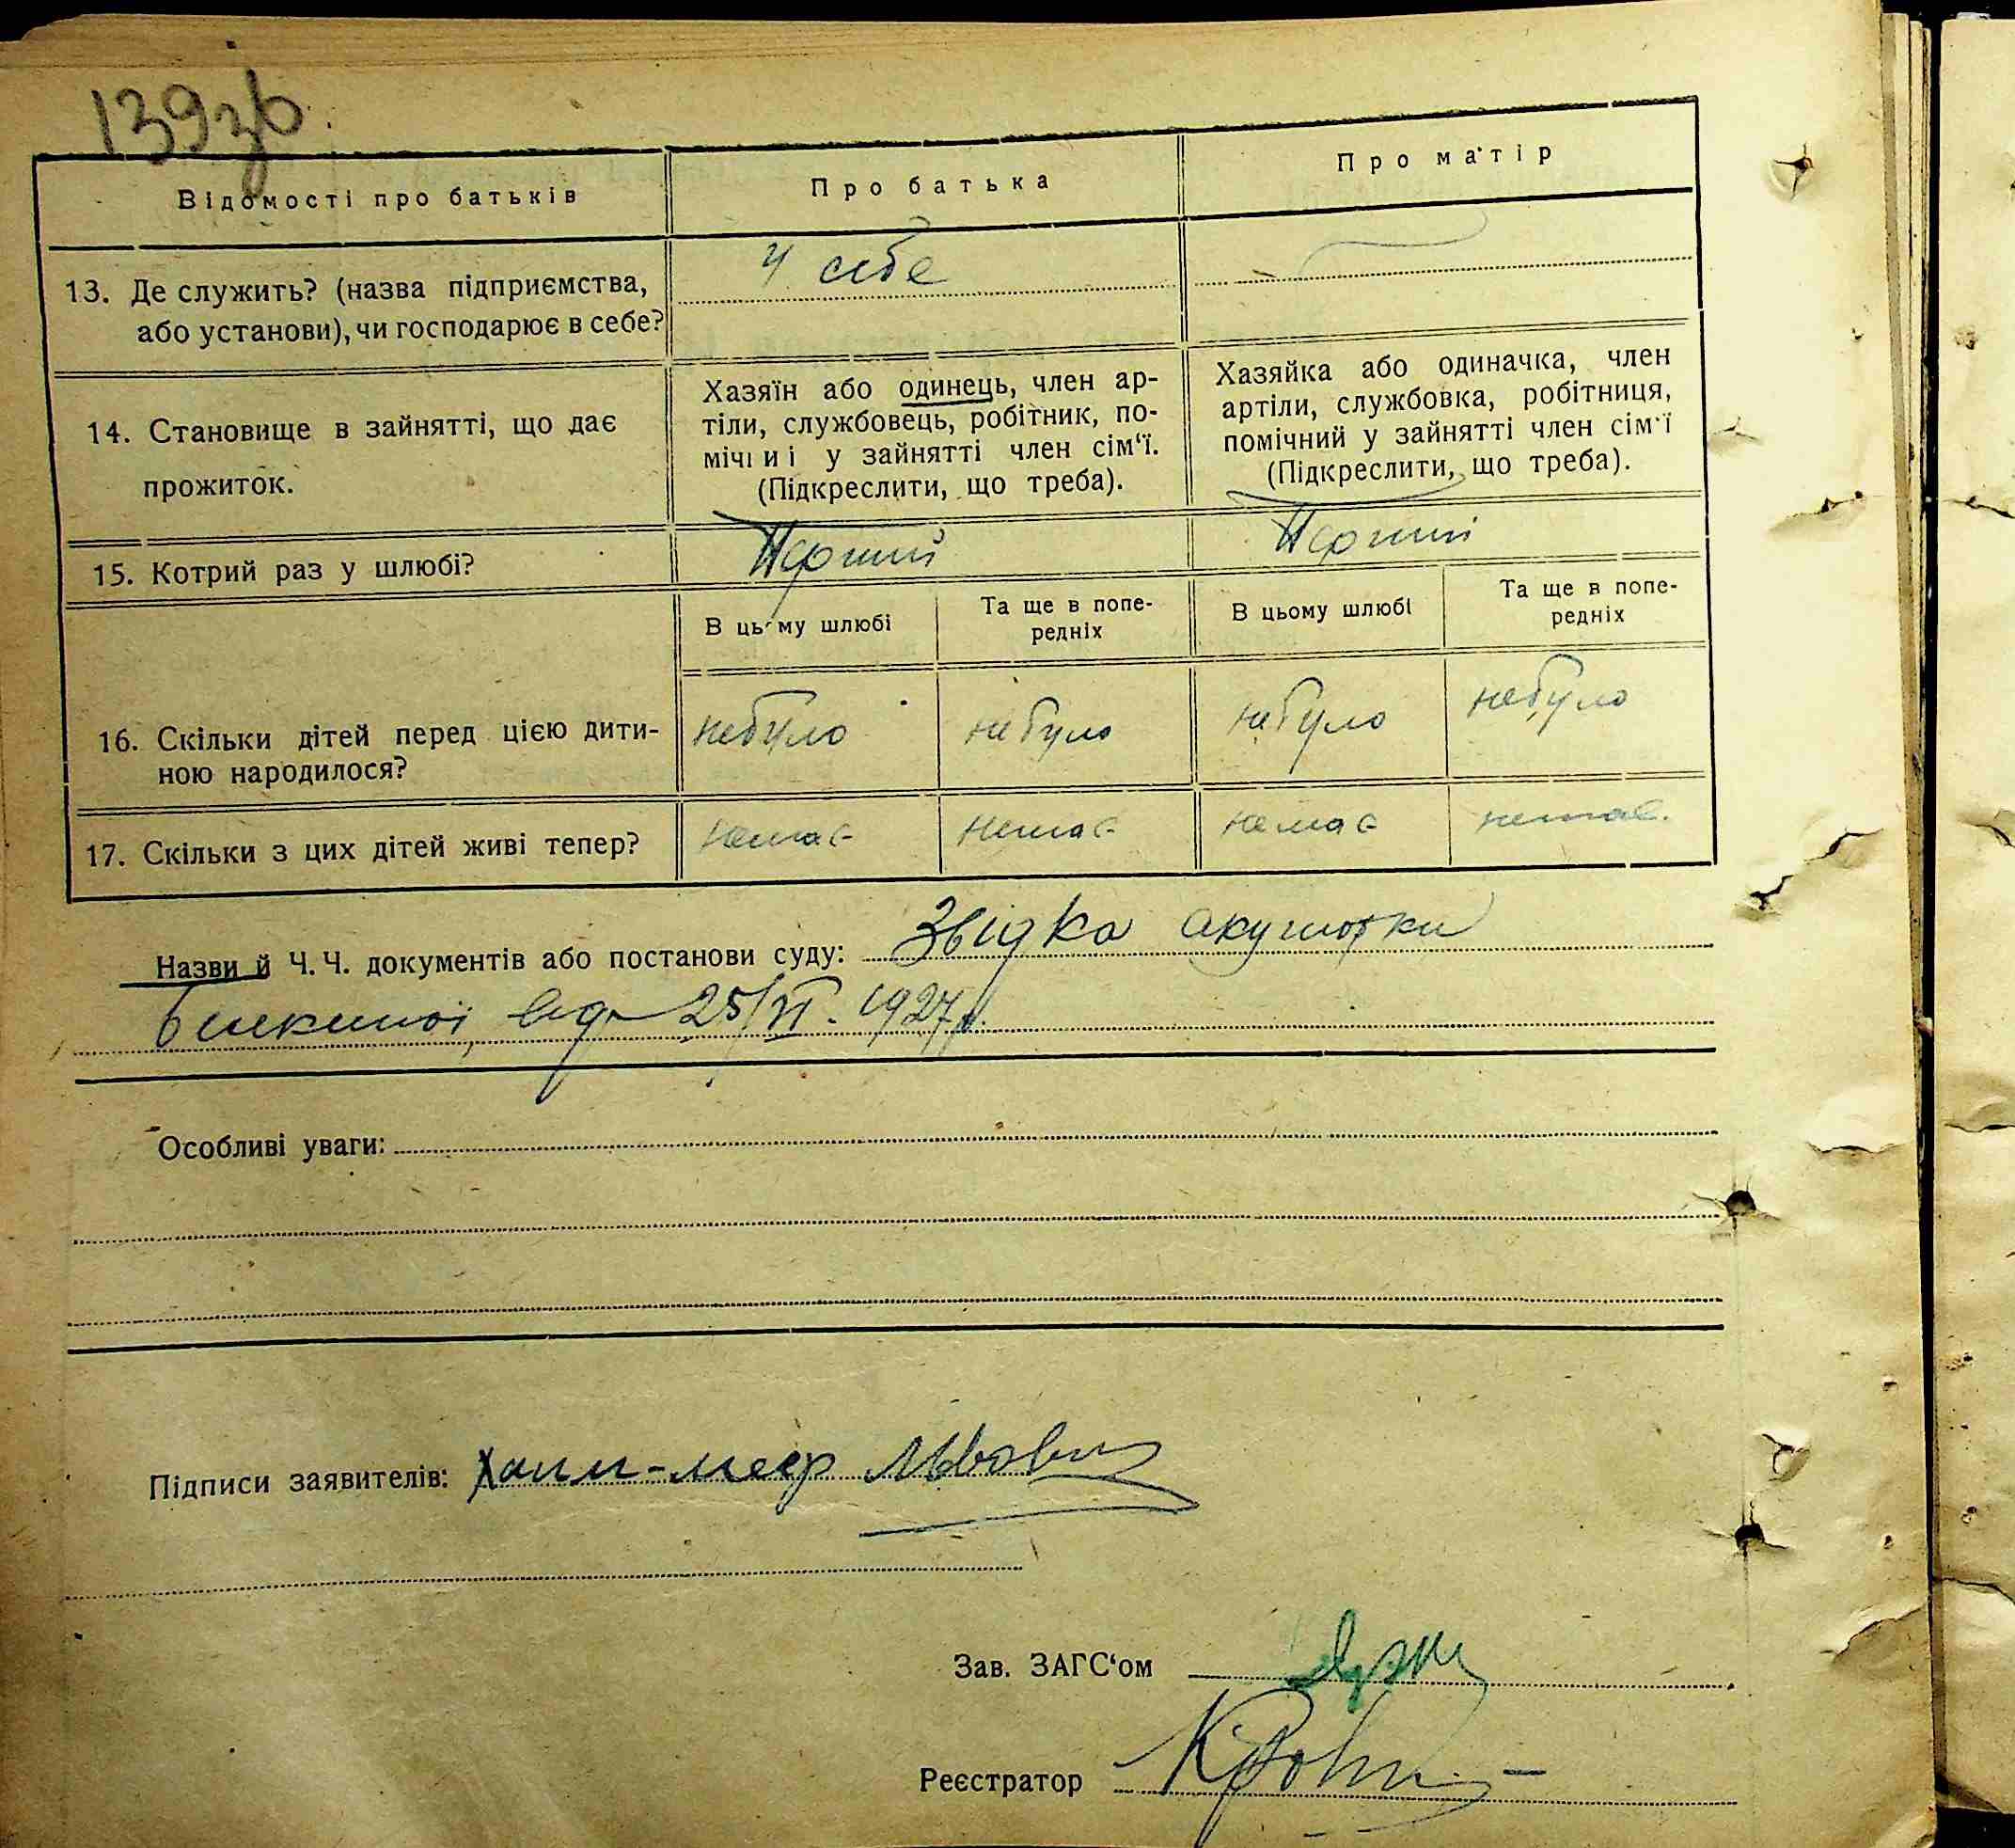 139зв
Відомості про батьків
Про батька
Про матір
13. Де служить? (назва підприємства,
або установи), чи господарює в себе?
у себе
14. Становище в зайнятті, що дає
прожиток.
Хазяїн або одинець, член ар-
тіли, службовець, робітник, по-
мічниі у зайнятті член сім‘ї.
(Підкреслити, що треба).
Хазяйка або одиначка, член
артіли, службовка, робітниця,
помічний у зайнятті член сім‘ї
(Підкреслити, що треба).
15. Котрий раз у шлюбі?
Перший
Перший
В цьому шлюбі
Та ще в попе-
редніх
В цьому шлюбі
Та ще в попе-
редніх
16. Скільки дітей перед цією дити-
ною народилося?
небуло
небуло
небуло
небуло
17. Скільки з цих дітей живі тепер?
немає
немає
немає
немає.
Назви й Ч.Ч. документів або постанови суду: Звідка акушорки
від 25/VI. 1927р.
Особливі уваги:
Підписи заявителів: Хаим-меер
Зав. ЗАГС‘ом
Реєстратор